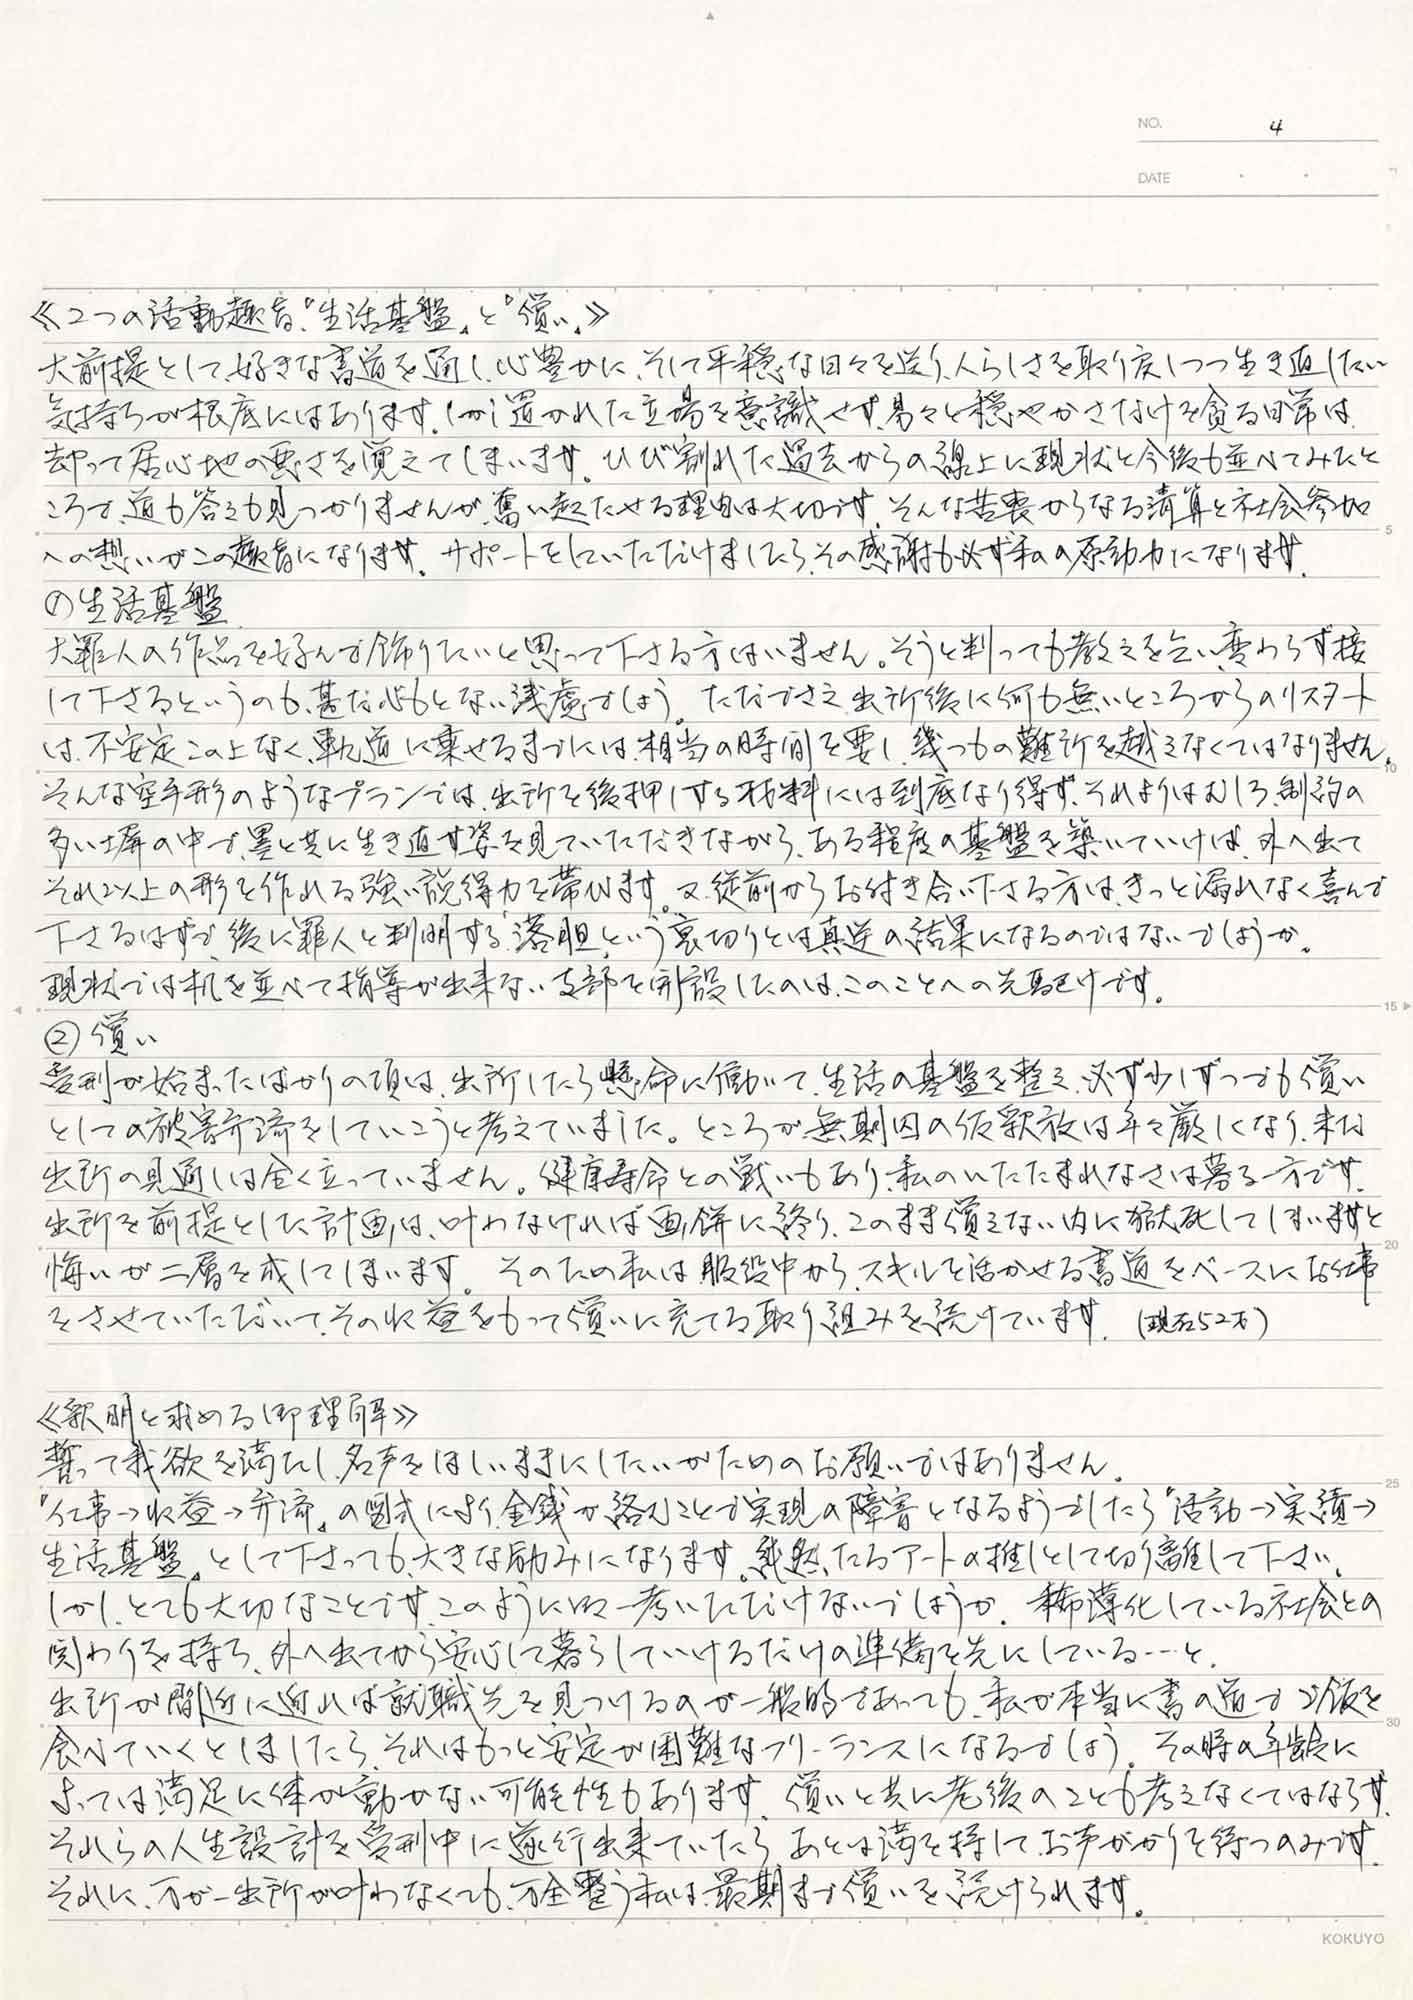 NO. 4
DATE
《2つの活動趣旨、『生活基盤』と『償い』》
大前提として、好きな書道を通し、心豊かに、そして平穏な日々を送り、人らしさを取り戻しつつ生き直したい
気持ちが根底にはあります。しかし置かれた立場を意識せず、易々と穏やかさなけを貪る日常は、
却って居心地の悪さを覚えてしまいます。ひび割れた過去からの線上に現状と今後も並べてみたと
ころで、道も答えも見つかりませんが、奮い起たせる理由は大切です。そんな苦衷からなる清算と社会参加
への想いがこの趣旨になります。サポートをしていただけましたら、その感謝も必ず私の原動力になります。
①生活基盤
大罪人の作品を好んで飾りたいと思って下さる方はいません。そうと判っても教えを乞い、変わらず接
して下さるというのも、甚だ心もとない浅慮でしょう。ただでさえ、出所後に何も無いところからのリスタート
は、不安定この上なく、軌道に乗せるまでには、相当の時間を要し、幾つもの難所を越えなくてはなりません。
そんな空手形のようなプランでは、出所を後押しする材料には到底なり得ず、それよりはむしろ、制約の
多い塀の中で、墨と共に生き直す姿を見ていただきながら、ある程度の基盤を築いていけば、外へ出て
それ以上の形を作れる強い説得力を帯びます。又、従前からお付き合い下さる方は、きっと漏れなく喜んで
下さるはずで、後に罪人と判明する『落胆』という裏切りとは真逆の結果になるのではないでしょうか。
現状では机を並べて指導が出来ない支部を開設したのは、このことへの先駆けです。
②償い
受刑が始まったばかりの頃は、出所したら懸命に働いて、生活の基盤を整え、必ず少しずつでも償い
としての被害弁済をしていこうと考えていました。ところが無期囚の仮釈放は年々厳しくなり、未だ
出所の見通しは全く立っていません。健康寿命との戦いもあり、私のいたたまれなさは募る一方です。
出所を前提とした計画は、叶わなければ画餅に終り、このまま償えない内に獄死してしまいますと
悔いが二層を成してしまいます。そのため私は、服役中から、スキルを活かせる書道をベースにお仕事
をさせていただいて、その収益をもって償いに充てる取り組みを続けています。(現在52才)
《釈明と求める御理解》
誓って我欲を満たし、名声をほしいままにしたいがためのお願いではありません。
『仕事→収益→弁済』の図式により、金銭が絡むことで実現の障害となるようでしたら『活動→実績→
生活基盤』として下さっても、大きな励みになります。純然たるアートの推しとして切り離して下さい。
しかし、とても大切なことです。このように一考いただけないでしょうか。希薄化している社会との
関わりを持ち、外へ出てから安心して暮らしていけるだけの準備を先にしている……と。
出所が間近に迫れば就職先を見つけるのが一般的であっても、私が本当に書の道でご飯を
食べていくとしましたら、それはもっと安定が困難なフリーランスになるでしょう。その時の年齢に
よっては満足に体が動かない可能性もあります。償いと共に老後のことも考えなくてはならず、
それらの人生設計を受刑中に遂行出来ていたら、あとは満を持して、お声がかりを待つのみです。
それに、万が一出所が叶わなくても、万全整う私は、最期まで償いを続けられます。
5
10
15
20
25
30
KOKUYO